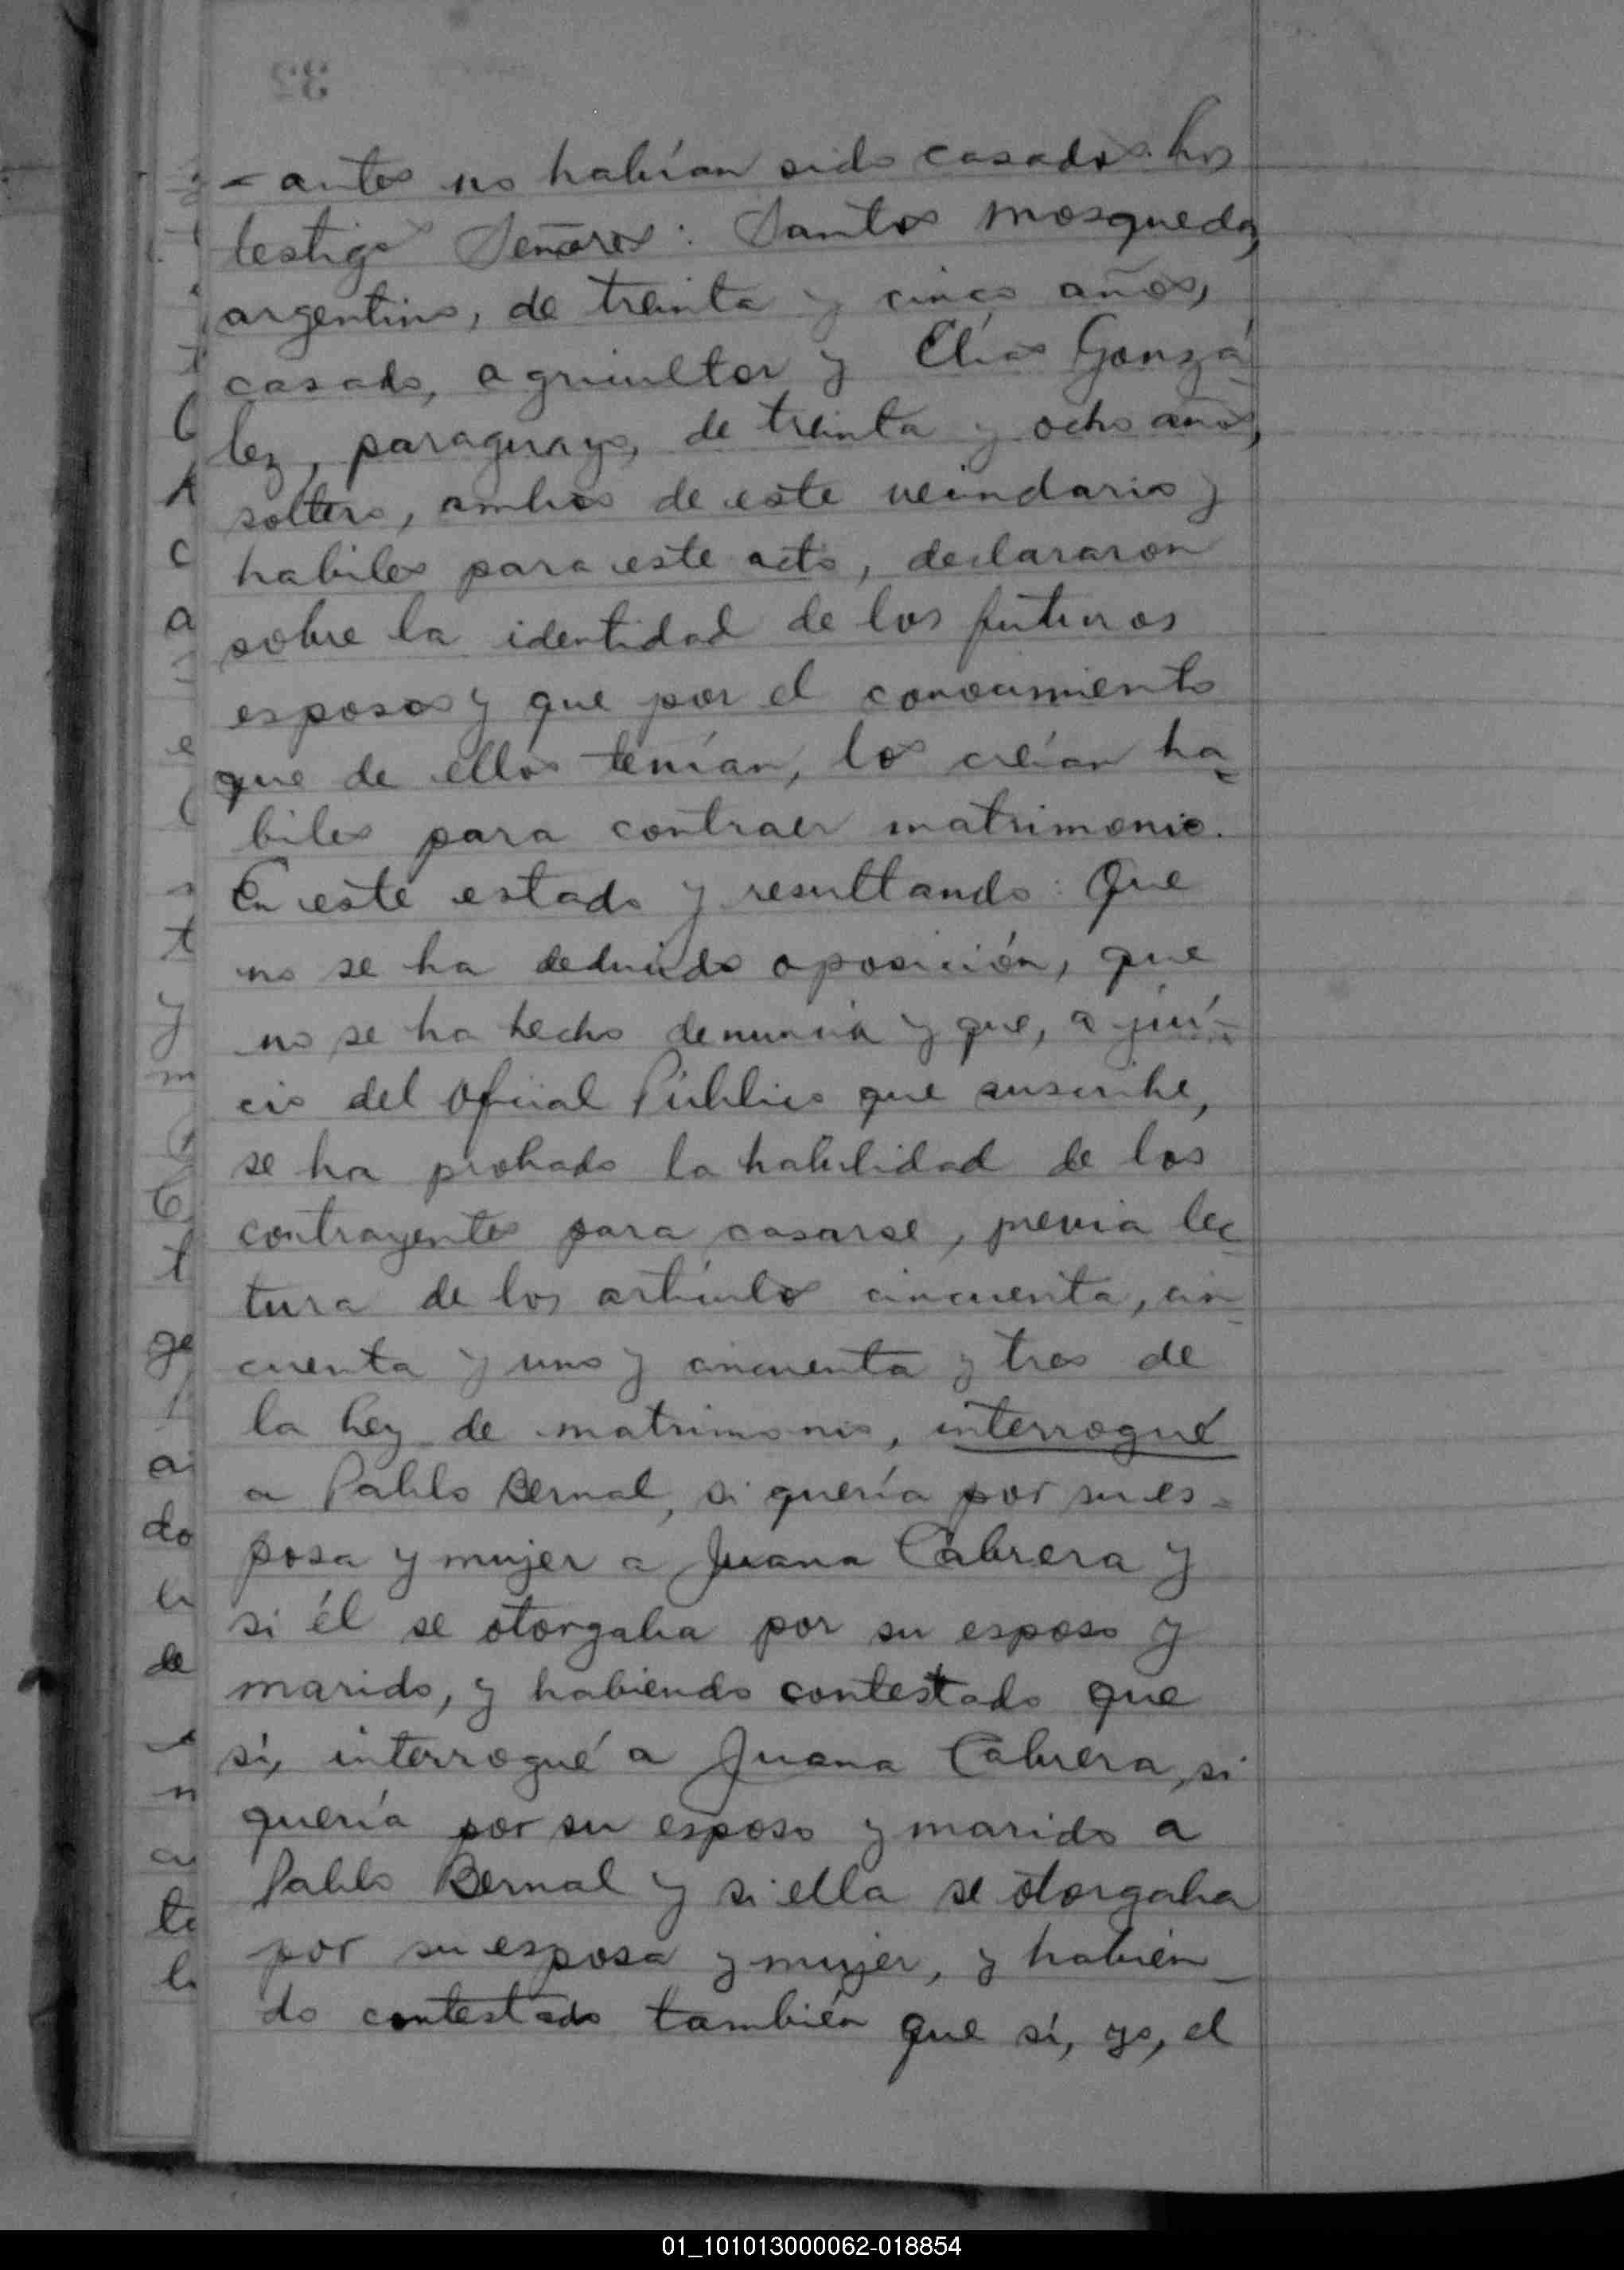 - antes no habían sido casados. Los
testigos Señores: Santos Mosqueda,
argentino, de treinta y cinco años,
casado, agricultor y Elías Gonzá-
lez, paraguayo, de treinta y ocho años,
soltero, ambos de este vecindario y
habiles para este acto, declararon
sobre la identidad de los futuros
esposos y que por el conocimiento
que de ellos tenían, los creían ha-
biles para contraer matrimonio.
En este estado y resultando: Que
no se ha deducido oposición, que
no se ha hecho denuncia y que, a jui-
cio del Oficial Público que suscribe,
se ha probado la habilidad de los
contrayentes para casarse, previa lec-
tura de los artículos cincuenta, cin-
cuenta y uno y cincuenta y tres de
la Ley de matrimonio, interrogué
a Pablo Bernal, si quería por su es-
posa y mujer a Juana Cabrera y
si él se otorgaba por su esposo y
marido, y habiendo contestado que
sí, interrogué a Juana Cabrera, si
quería por su esposo y marido a
Pablo Bernal y si ella se otorgaba
por su esposa y mujer, y habien-
do contestado también que sí, yo, el
01_101013000062-018854